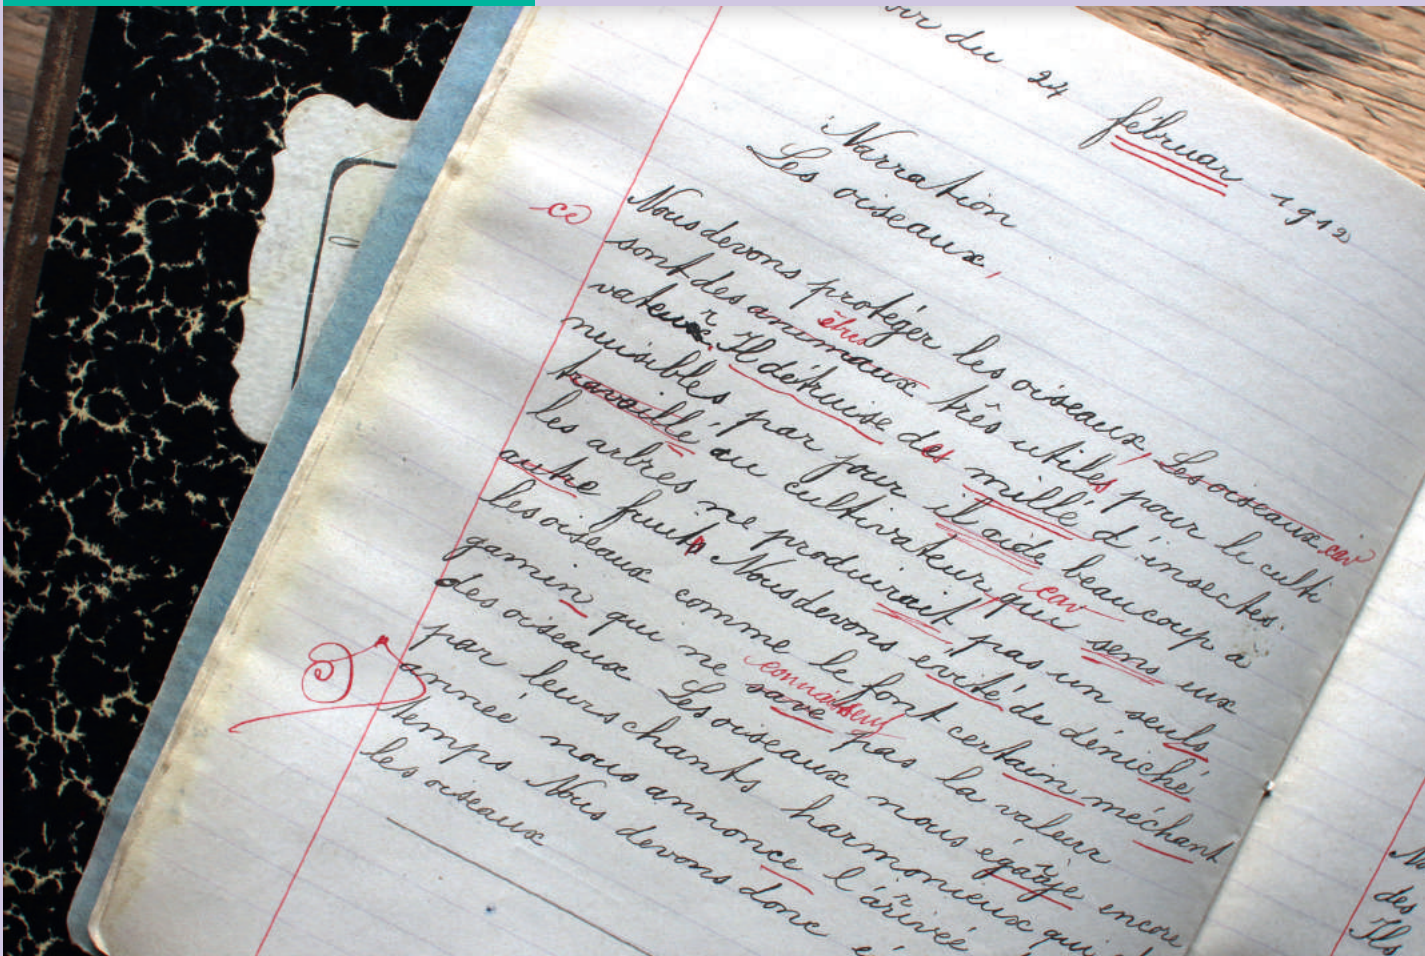 du 24 fébruar 1912
Narration
Les oiseaux,
ce
Nous devons protéger les oiseaux, Les oiseaux car
êtres
sont des animaux très utiles pour le culti
r
vateux. Il détruise des millé d'insectes.
nuisibles, par jour il aide beaucoup a
car
travaillé au cultivateur, qui sens eux
les arbres ne produirait, pas un seuls
autre fruits Nous devons evité de déniché
les oiseaux comme le font certain méchant
connaissent
gamin qui ne save pas la valeur
des oiseaux Les oiseaux nous égaaje encore
par leurs chants harmonieux qui
année nous annonce l'árivée
temps Nous devons donc
les oiseaux
des
Ils